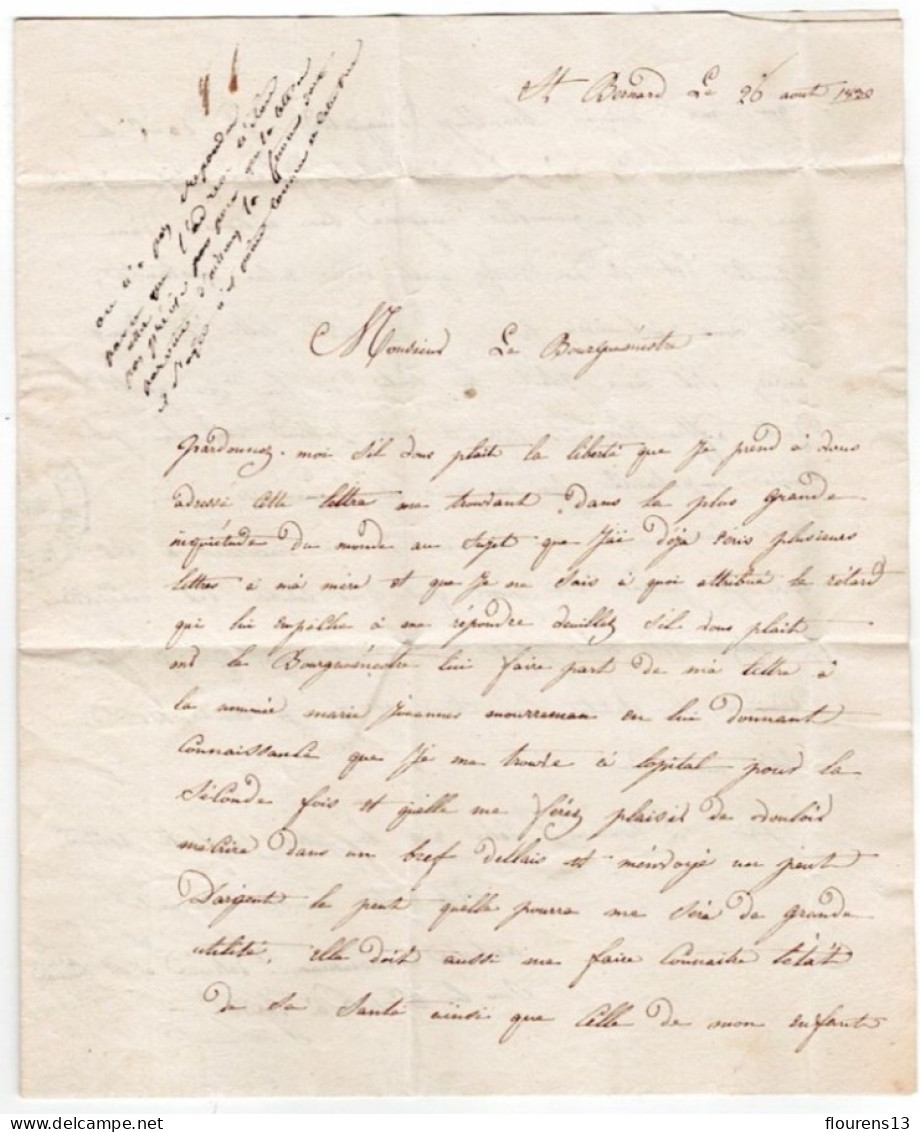 St Bernard Le 26 aout 1830
on n'a pas repondu
Monsieur Le Bourguemestre
pardonnez-moi sil vous plait la liberté que Je prend à vous
adressé cette lettre me trouvant dans la plus grande
inquiétude du monde au sujet que J'ai déja écris plusieurs
lettres à ma mère et que Je ne sais à quoi attribué le rétard
qui lui empeche à me répondre veuillez sil vous plait
mr le Bourguemestre lui faire part de ma lettre à
la nommée marie Joannes mourreman en lui donnant
connaissance que Je me trouve à lopital pour la
séconde fois et quelle me férez plaisir de vouloir
mécrire dans un bref dellais et ménvoyé un peut
D'argent le peut quelle pourra me séra de grande
utilité, elle doit aussi me faire connaitre létat
de sa santé ainsi que celle de mon enfant
delcampe.net
flourens13